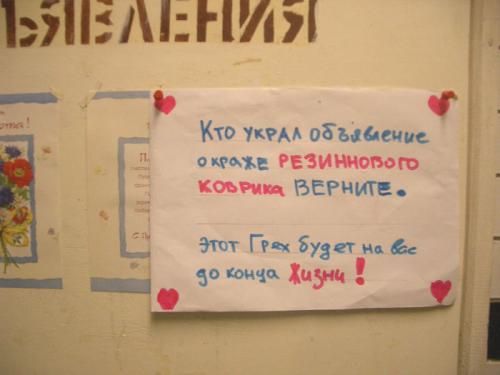 ЪЯВЛЕНИЯ
Кто украл объявление
о краже РЕЗИННОВОГО
коврика ВЕРНИТЕ.
этот Грех будет на вас
до конца Жизни!